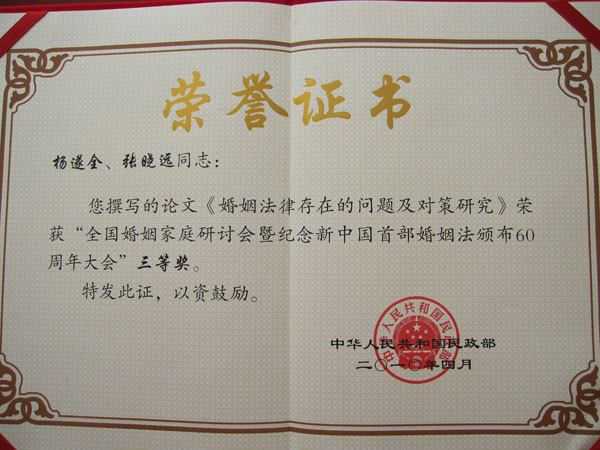 荣誉证书
杨遂全、张晓远同志：
您撰写的论文《婚姻法律存在的问题及对策研究》荣
获“全国婚姻家庭研讨会暨纪念新中国首部婚姻法颁布60
周年大会”三等奖。
特发此证，以资鼓励。
中华人民共和国民政部
中华人民共和国民政部
二〇一〇年四月